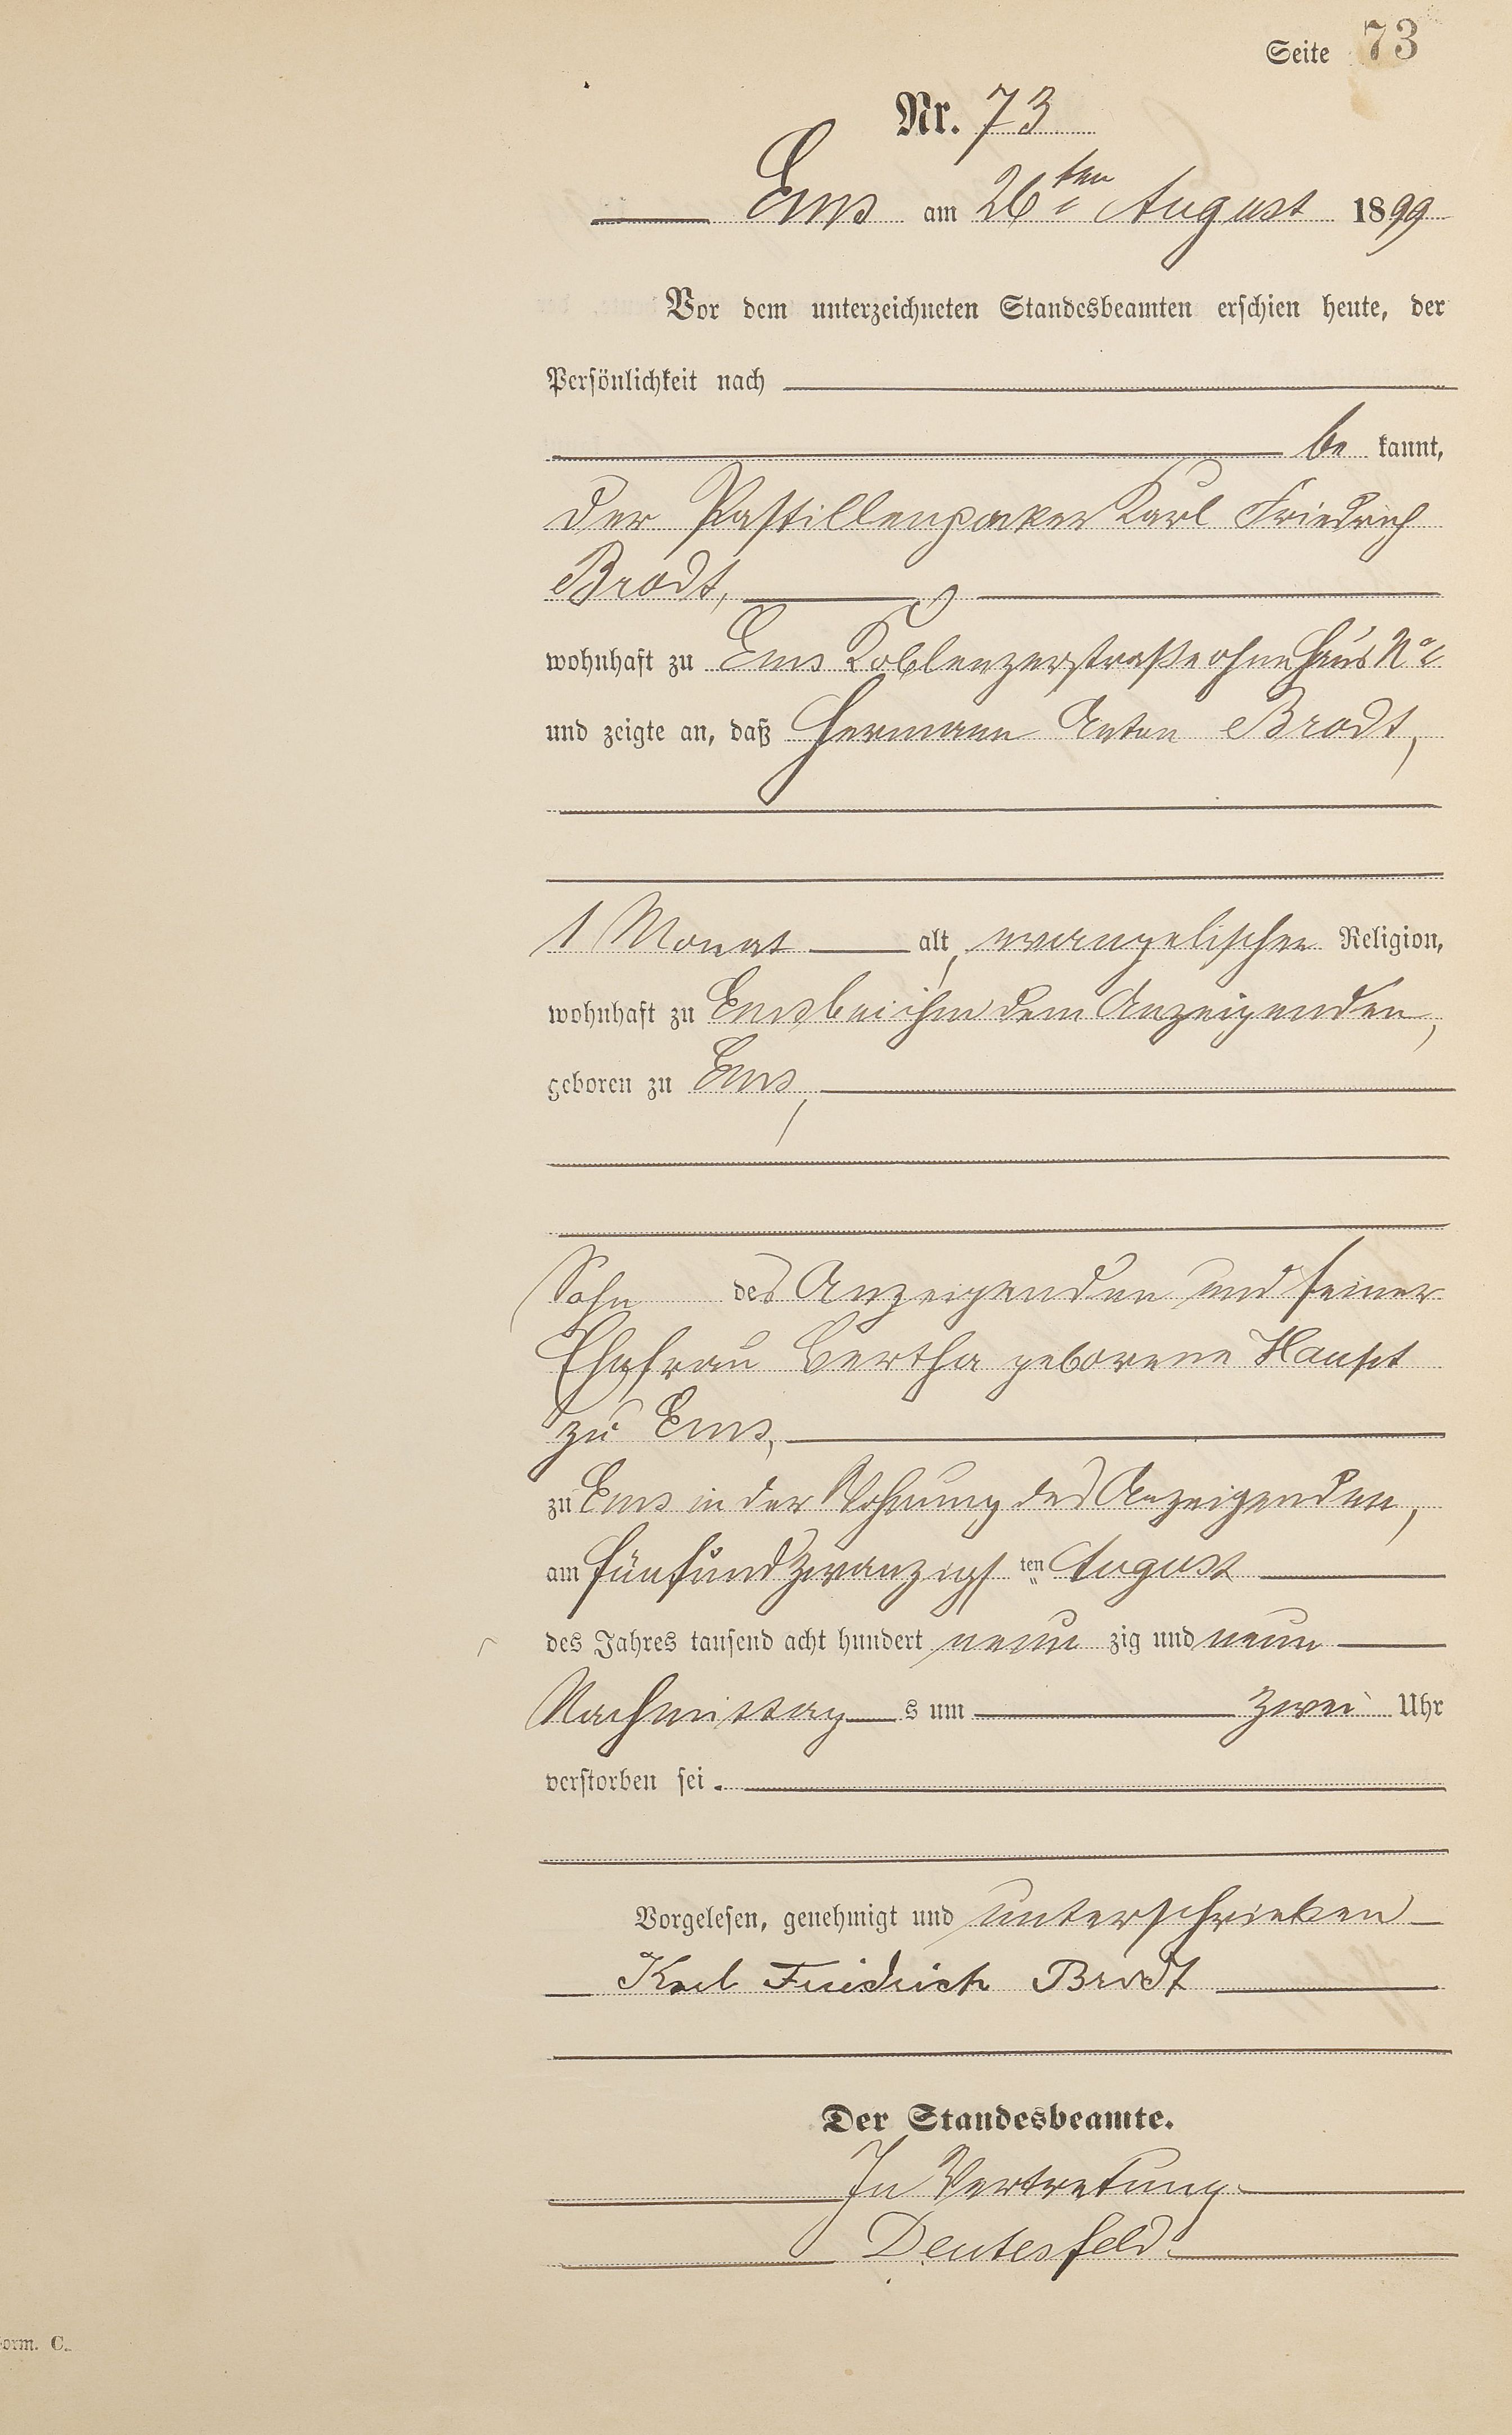 Seite 73
Nr. 73
Ems am 26ten August 1899
Vor dem unterzeichneten Standesbeamten erschien heute, der
Persönlichkeit nach
be kannt,
der Pastillenpacker Karl Friedrich
Brodt,
wohnhaft zu Ems Koblenzerstraße ohne Haus No
und zeigte an, daß Hermann Anton Brodt,
1 Monat alt, evangelischer Religion,
wohnhaft zu Ems bei ihm dem Anzeigenden,
geboren zu Ems,
Sohn des Anzeigenden und seiner
Ehefrau Bertha geborene Haupt
zu Ems,
zu Ems in der Wohnung des Anzeigenden,
am fünfundzwanzigsten August
des Jahres tausend acht hundert neun zig und neun
Nachmittag s um zwei Uhr
verstorben sei.
Vorgelesen, genehmigt und unterschrieben
Karl Friedrich Brodt
Der Standesbeamte.
In Vertretung.
Deutesfeld.
orm. C.